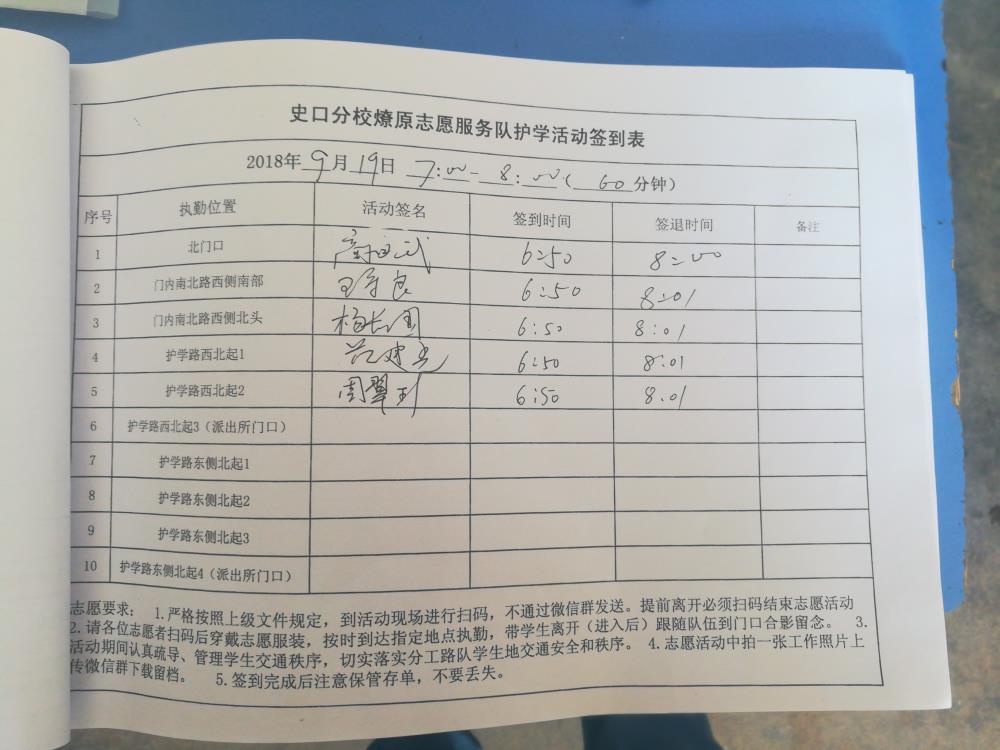 史口分校燎原志愿服务队护学活动签到表
2018年9月19日 7:00-8:00(60分钟)
序号 执勤位置 活动签名 签到时间 签退时间 备注
1 北门口 6:50 8:00
2 门内南北路西侧南部 6:50 8:01
3 门内南北路西侧北头 杨长国 6:50 8:01
4 护学路西北起1 6:50 8:01
5 护学路西北起2 周翠 6:50 8.01
6 护学路西北起3(派出所门口)
7 护学路东侧北起1
8 护学路东侧北起2
9 护学路东侧北起3
10 护学路东侧北起4(派出所门口)
志愿要求: 1.严格按照上级文件规定,到活动现场进行扫码,不通过微信群发送。提前离开必须扫码结束志愿活动
2.请各位志愿者扫码后穿戴志愿服装,按时到达指定地点执勤,带学生离开(进入后)跟随队伍到门口合影留念。 3.
活动期间认真疏导、管理学生交通秩序,切实落实分工路队学生地交通安全和秩序。 4.志愿活动中拍一张工作照片上
传微信群下载留档。 5.签到完成后注意保管存单,不要丢失。